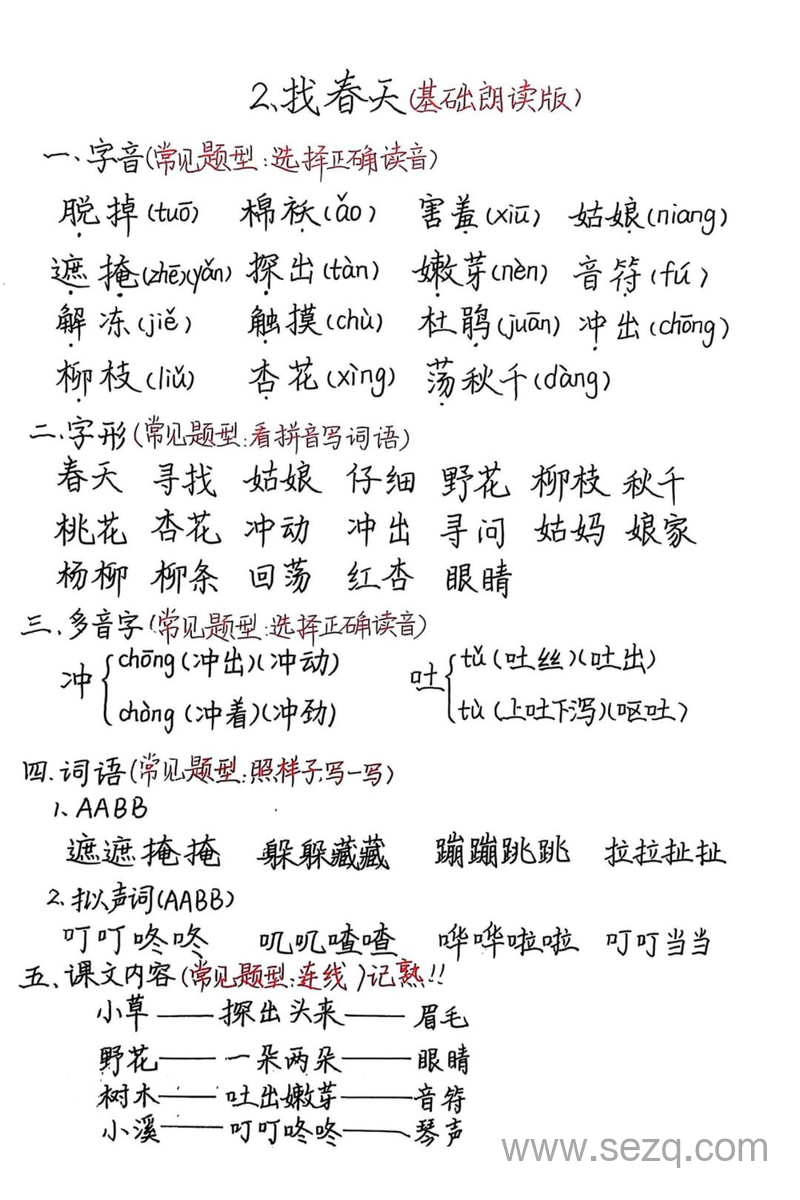 2、找春天(基础朗读版)
一、字音(常见题型:选择正确读音)
脱掉(tuō) 棉袄(ǎo) 害羞(xiū) 姑娘(niang)
遮掩(zhē)(yǎn) 探出(tàn) 嫩芽(nèn) 音符(fú)
解冻(jiě) 触摸(chù) 杜鹃(juān) 冲出(chōng)
柳枝(liǔ) 杏花(xìng) 荡秋千(dàng)
二、字形(常见题型:看拼音写词语)
春天 寻找 姑娘 仔细 野花 柳枝 秋千
桃花 杏花 冲动 冲出 寻问 姑妈 娘家
杨柳 柳条 回荡 红杏 眼睛
三、多音字(常见题型:选择正确读音)
冲 chōng(冲出)(冲动) chòng(冲着)(冲劲) 吐 tǔ(吐丝)(吐出) tù(上吐下泻)(呕吐)
四、词语(常见题型:照样子写一写)
1、AABB
遮遮掩掩 躲躲藏藏 蹦蹦跳跳 拉拉扯扯
2、拟声词(AABB)
叮叮咚咚 叽叽喳喳 哗哗啦啦 叮叮当当
五、课文内容(常见题型:连线)记熟!!
小草——探出头来——眉毛
野花——一朵两朵——眼睛
树木——吐出嫩芽——音符
小溪——叮叮咚咚——琴声
www.sezq.com